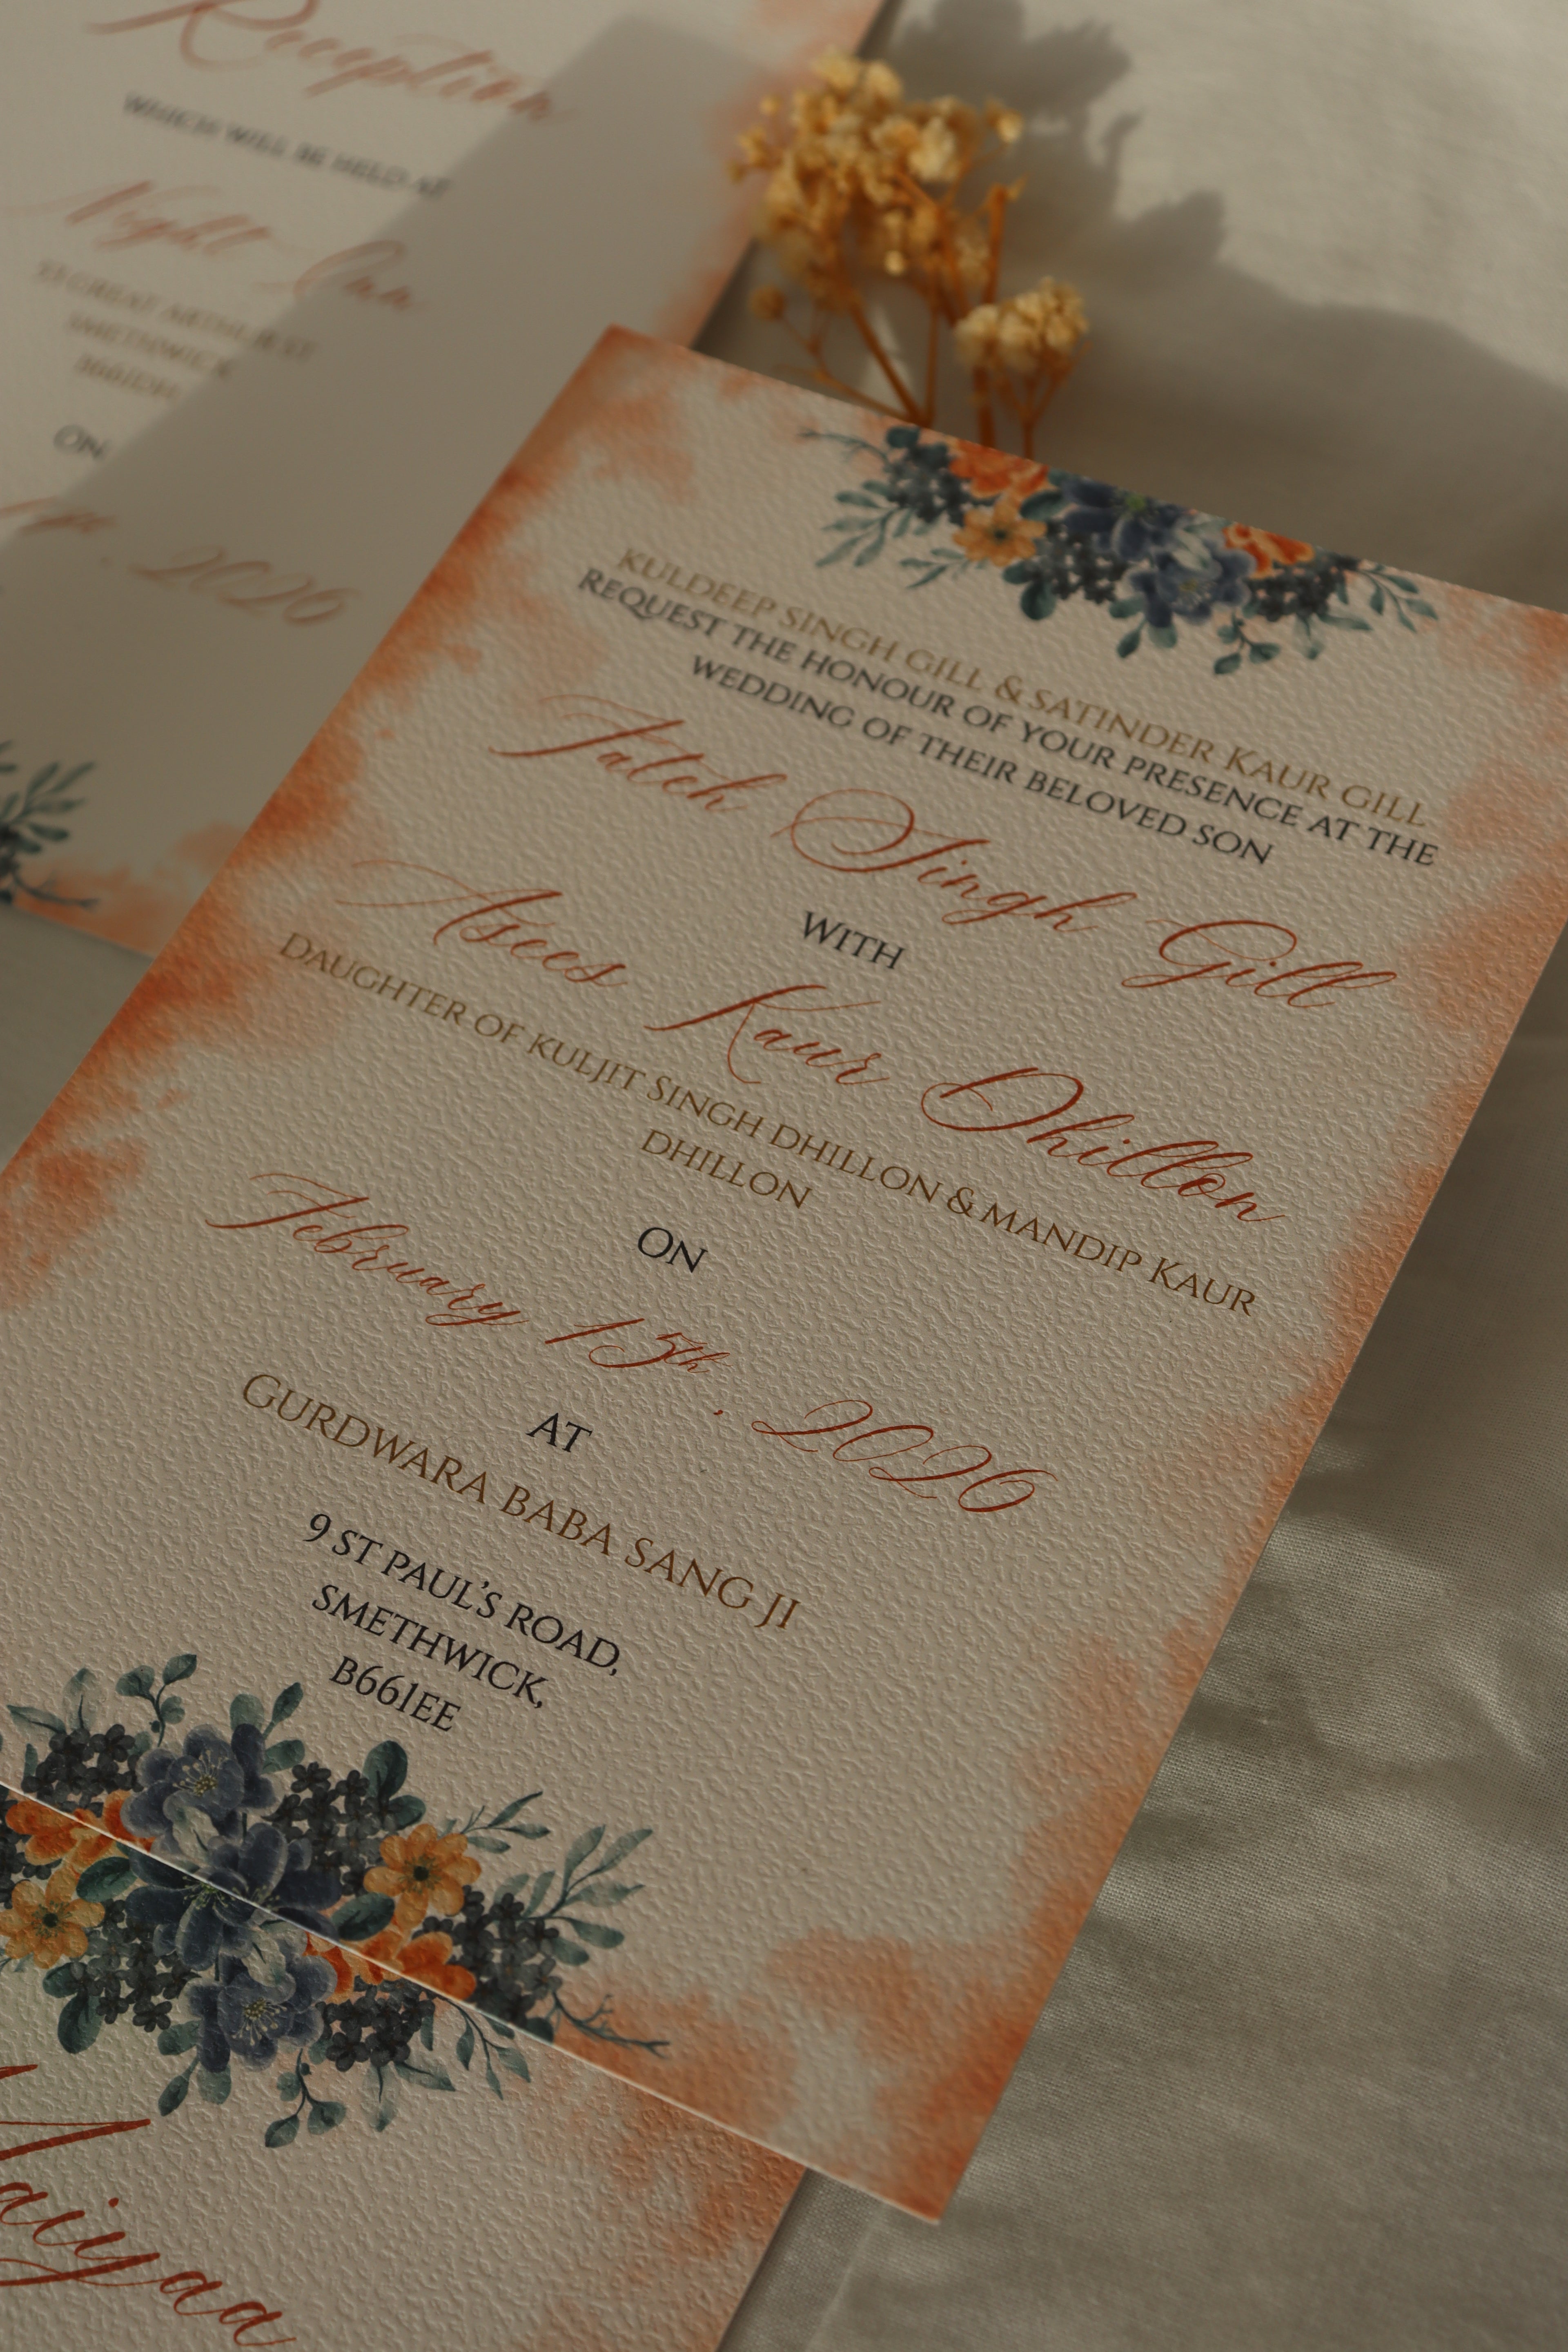 Reception
WHICH WILL BE HELD AT
Night Inn
SMETHWICK
ON
2026
KULDEEP SINGH GILL & SATINDER KAUR GILL
REQUEST THE HONOUR OF YOUR PRESENCE AT THE
WEDDING OF THEIR BELOVED SON
Fateh Singh Gill
WITH
Asees Kaur Dhillon
DAUGHTER OF KULJIT SINGH DHILLON & MANDIP KAUR
DHILLON
ON
February 15th, 2026
AT
GURDWARA BABA SANG JI
9 ST PAUL'S ROAD,
SMETHWICK,
B661EE
Maiyaa